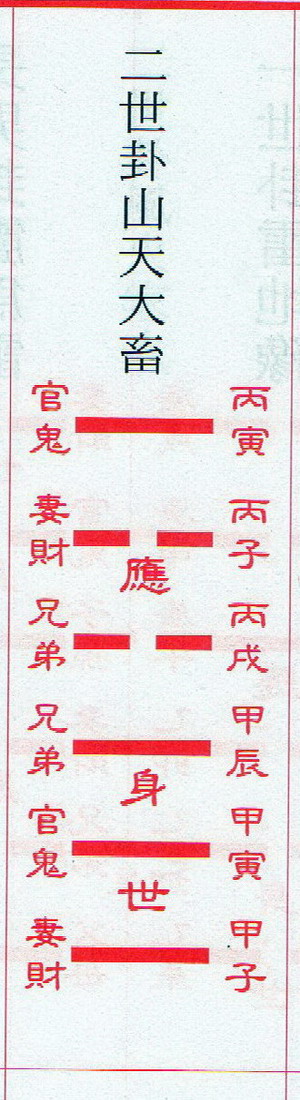 二世卦山天大畜
官鬼 丙寅
妻財 丙子
應
兄弟 丙戌
兄弟 甲辰
身
官鬼 甲寅
世
妻財 甲子